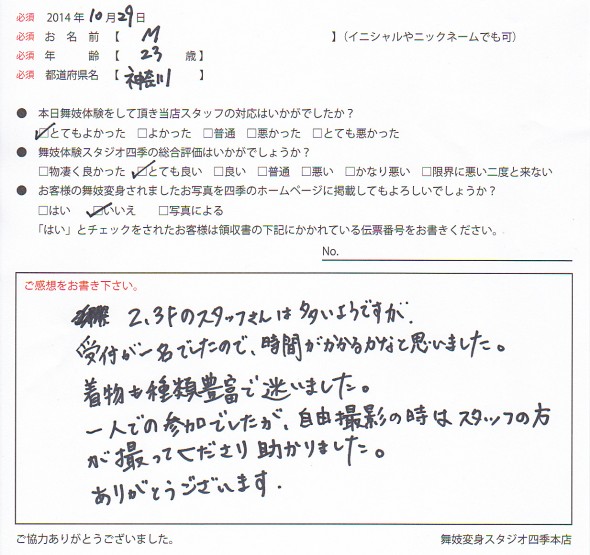 必須 2014年10月29日
必須 お名前【 M 】(イニシャルやニックネームでも可)
必須 年齢【 23 歳】
必須 都道府県名【 神奈川 】
● 本日舞妓体験をして頂き当店スタッフの対応はいかがでしたか?
☑とてもよかった □よかった □普通 □悪かった □とても悪かった
● 舞妓体験スタジオ四季の総合評価はいかがでしょうか?
□物凄く良かった ☑とても良い □良い □普通 □悪い □かなり悪い □限界に悪い二度と来ない
● お客様の舞妓変身されましたお写真を四季のホームページに掲載してもよろしいでしょうか?
□はい ☑いいえ □写真による
「はい」とチェックをされたお客様は領収書の下記にかかれている伝票番号をお書きください。
No.
ご感想をお書き下さい。
2、3Fのスタッフさんは多いようですが、
受付が一名でしたので、時間がかかるかなと思いました。
着物も種類豊富で迷いました。
一人での参加でしたが、自由撮影の時はスタッフの方
が撮ってくださり助かりました。
ありがとうございます.
ご協力ありがとうございました。
舞妓変身スタジオ四季本店